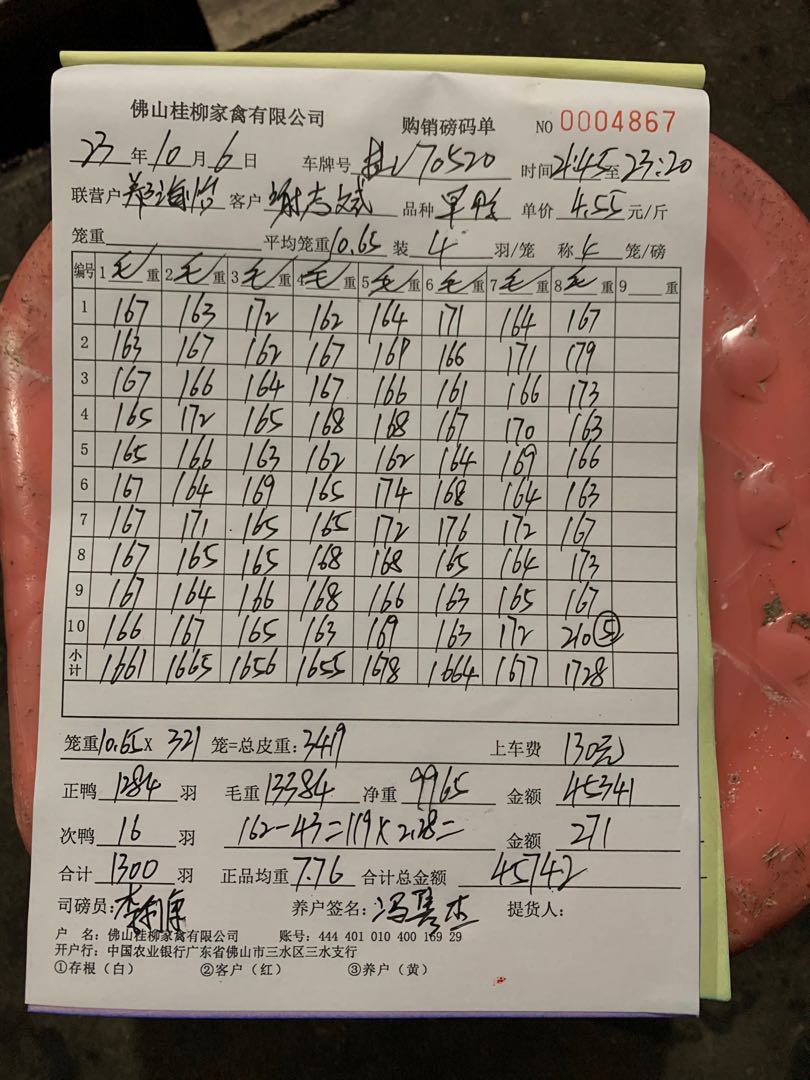 佛山桂柳家禽有限公司 购销磅码单 NO 0004867
23年10月6日 车牌号 70520 时间21:45至23:20
联营户 客户 谢志斌 品种 单价 4.55 元/斤
笼重 平均笼重10.65 装 4 羽/笼 称 4 笼/磅
编号 1毛重 2毛重 3毛重 4毛重 5毛重 6毛重 7毛重 8毛重 9 重
1 167 163 172 162 164 171 164 167
2 163 167 162 167 169 166 171 179
3 167 166 164 167 166 161 166 173
4 165 172 165 168 168 167 170 163
5 165 166 163 162 162 164 169 166
6 167 164 169 165 174 168 164 163
7 167 171 165 165 172 176 172 167
8 167 165 165 168 168 165 164 173
9 167 164 166 168 166 163 165 167
10 166 167 165 163 169 163 172 210⑤
小计 1661 1665 1656 1655 1678 1664 1677 1728
笼重10.65× 321 笼=总皮重:3419 上车费 130元
正鸭 1284 羽 毛重 13384 净重 9965 金额 45341
次鸭 16 羽 162-43=119×2.28= 金额 271
合计 1300 羽 正品均重 7.76 合计总金额 45742
司磅员: 养户签名: 提货人:
户 名:佛山桂柳家禽有限公司 账号:444 401 010 400 169 29
开户行:中国农业银行广东省佛山市三水区三水支行
①存根（白） ②客户（红） ③养户（黄）